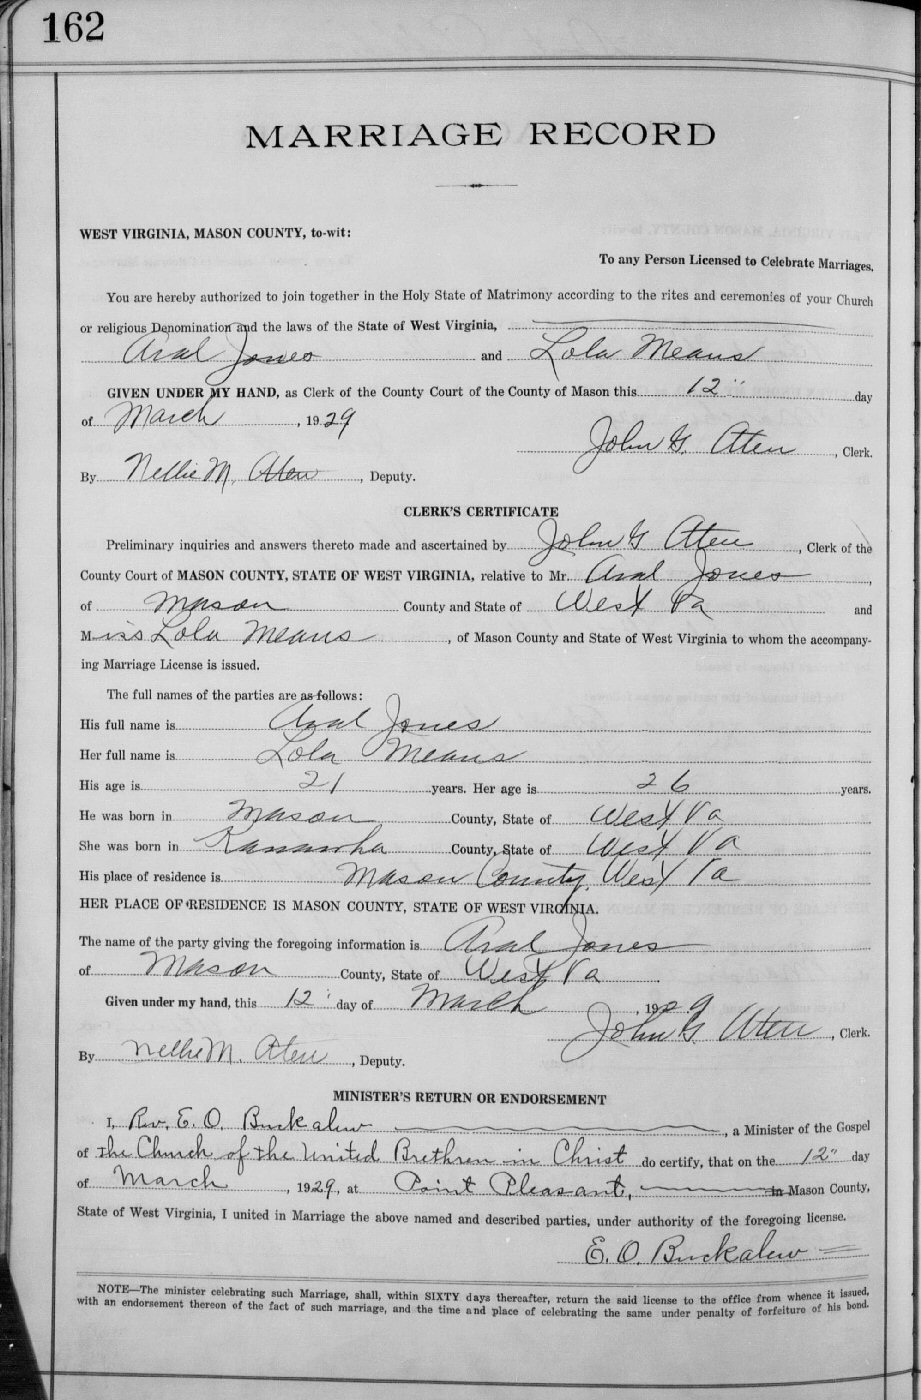 162
MARRIAGE RECORD
WEST VIRGINIA, MASON COUNTY, to-wit:
To any Person Licensed to Celebrate Marriages,
You are hereby authorized to join together in the Holy State of Matrimony according to the rites and ceremonies of your Church
or religious Denomination and the laws of the State of West Virginia,
Aval Jones and Lola Means
GIVEN UNDER MY HAND, as Clerk of the County Court of the County of Mason this 12" day
of March, 1929
John G. Aten, Clerk.
By Nellie M. Aten, Deputy.
CLERK'S CERTIFICATE
Preliminary inquiries and answers thereto made and ascertained by John G Aten, Clerk of the
County Court of MASON COUNTY, STATE OF WEST VIRGINIA, relative to Mr. Aval Jones,
of Mason County and State of West Va and
Miss Lola Means, of Mason County and State of West Virginia to whom the accompany-
ing Marriage License is issued.
The full names of the parties are as follows:
His full name is Aval Jones
Her full name is Lola Means
His age is 21 years. Her age is 26 years.
He was born in Mason County, State of West Va
She was born in Kanawha County, State of West Va
His place of residence is Mason County, West Va
HER PLACE OF RESIDENCE IS MASON COUNTY, STATE OF WEST VIRGINIA.
The name of the party giving the foregoing information is Aval Jones
of Mason County, State of West Va
Given under my hand, this 12" day of March, 1929
John G. Aten, Clerk.
By Nellie M. Aten, Deputy.
MINISTER'S RETURN OR ENDORSEMENT
I, Rev. E. O. Buckalew, a Minister of the Gospel
of the Church of the United Brethren in Christ do certify, that on the 12" day
of March, 1929, at Point Pleasant, in Mason County,
State of West Virginia, I united in Marriage the above named and described parties, under authority of the foregoing license.
E. O. Buckalew
NOTE—The minister celebrating such Marriage, shall, within SIXTY days thereafter, return the said license to the office from whence it issued,
with an endorsement thereon of the fact of such marriage, and the time and place of celebrating the same under penalty of forfeiture of his bond.